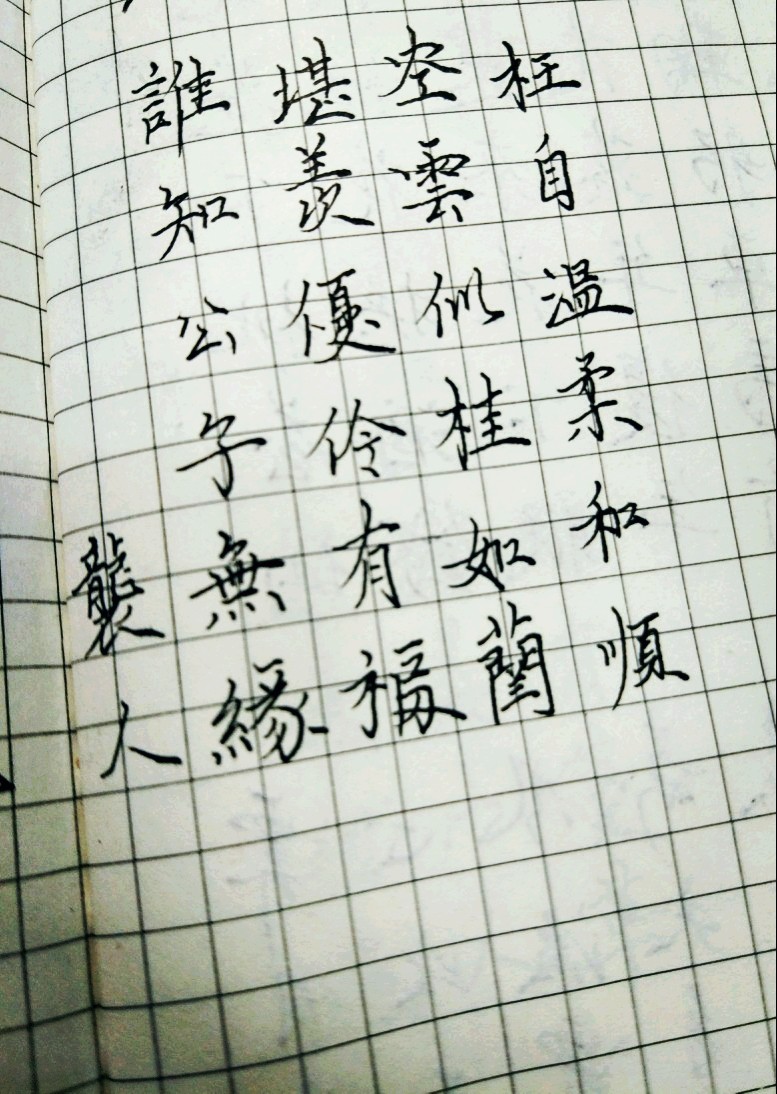 枉自温柔和順
空雲似桂如蘭
堪羨優伶有福
誰知公子無緣
襲人